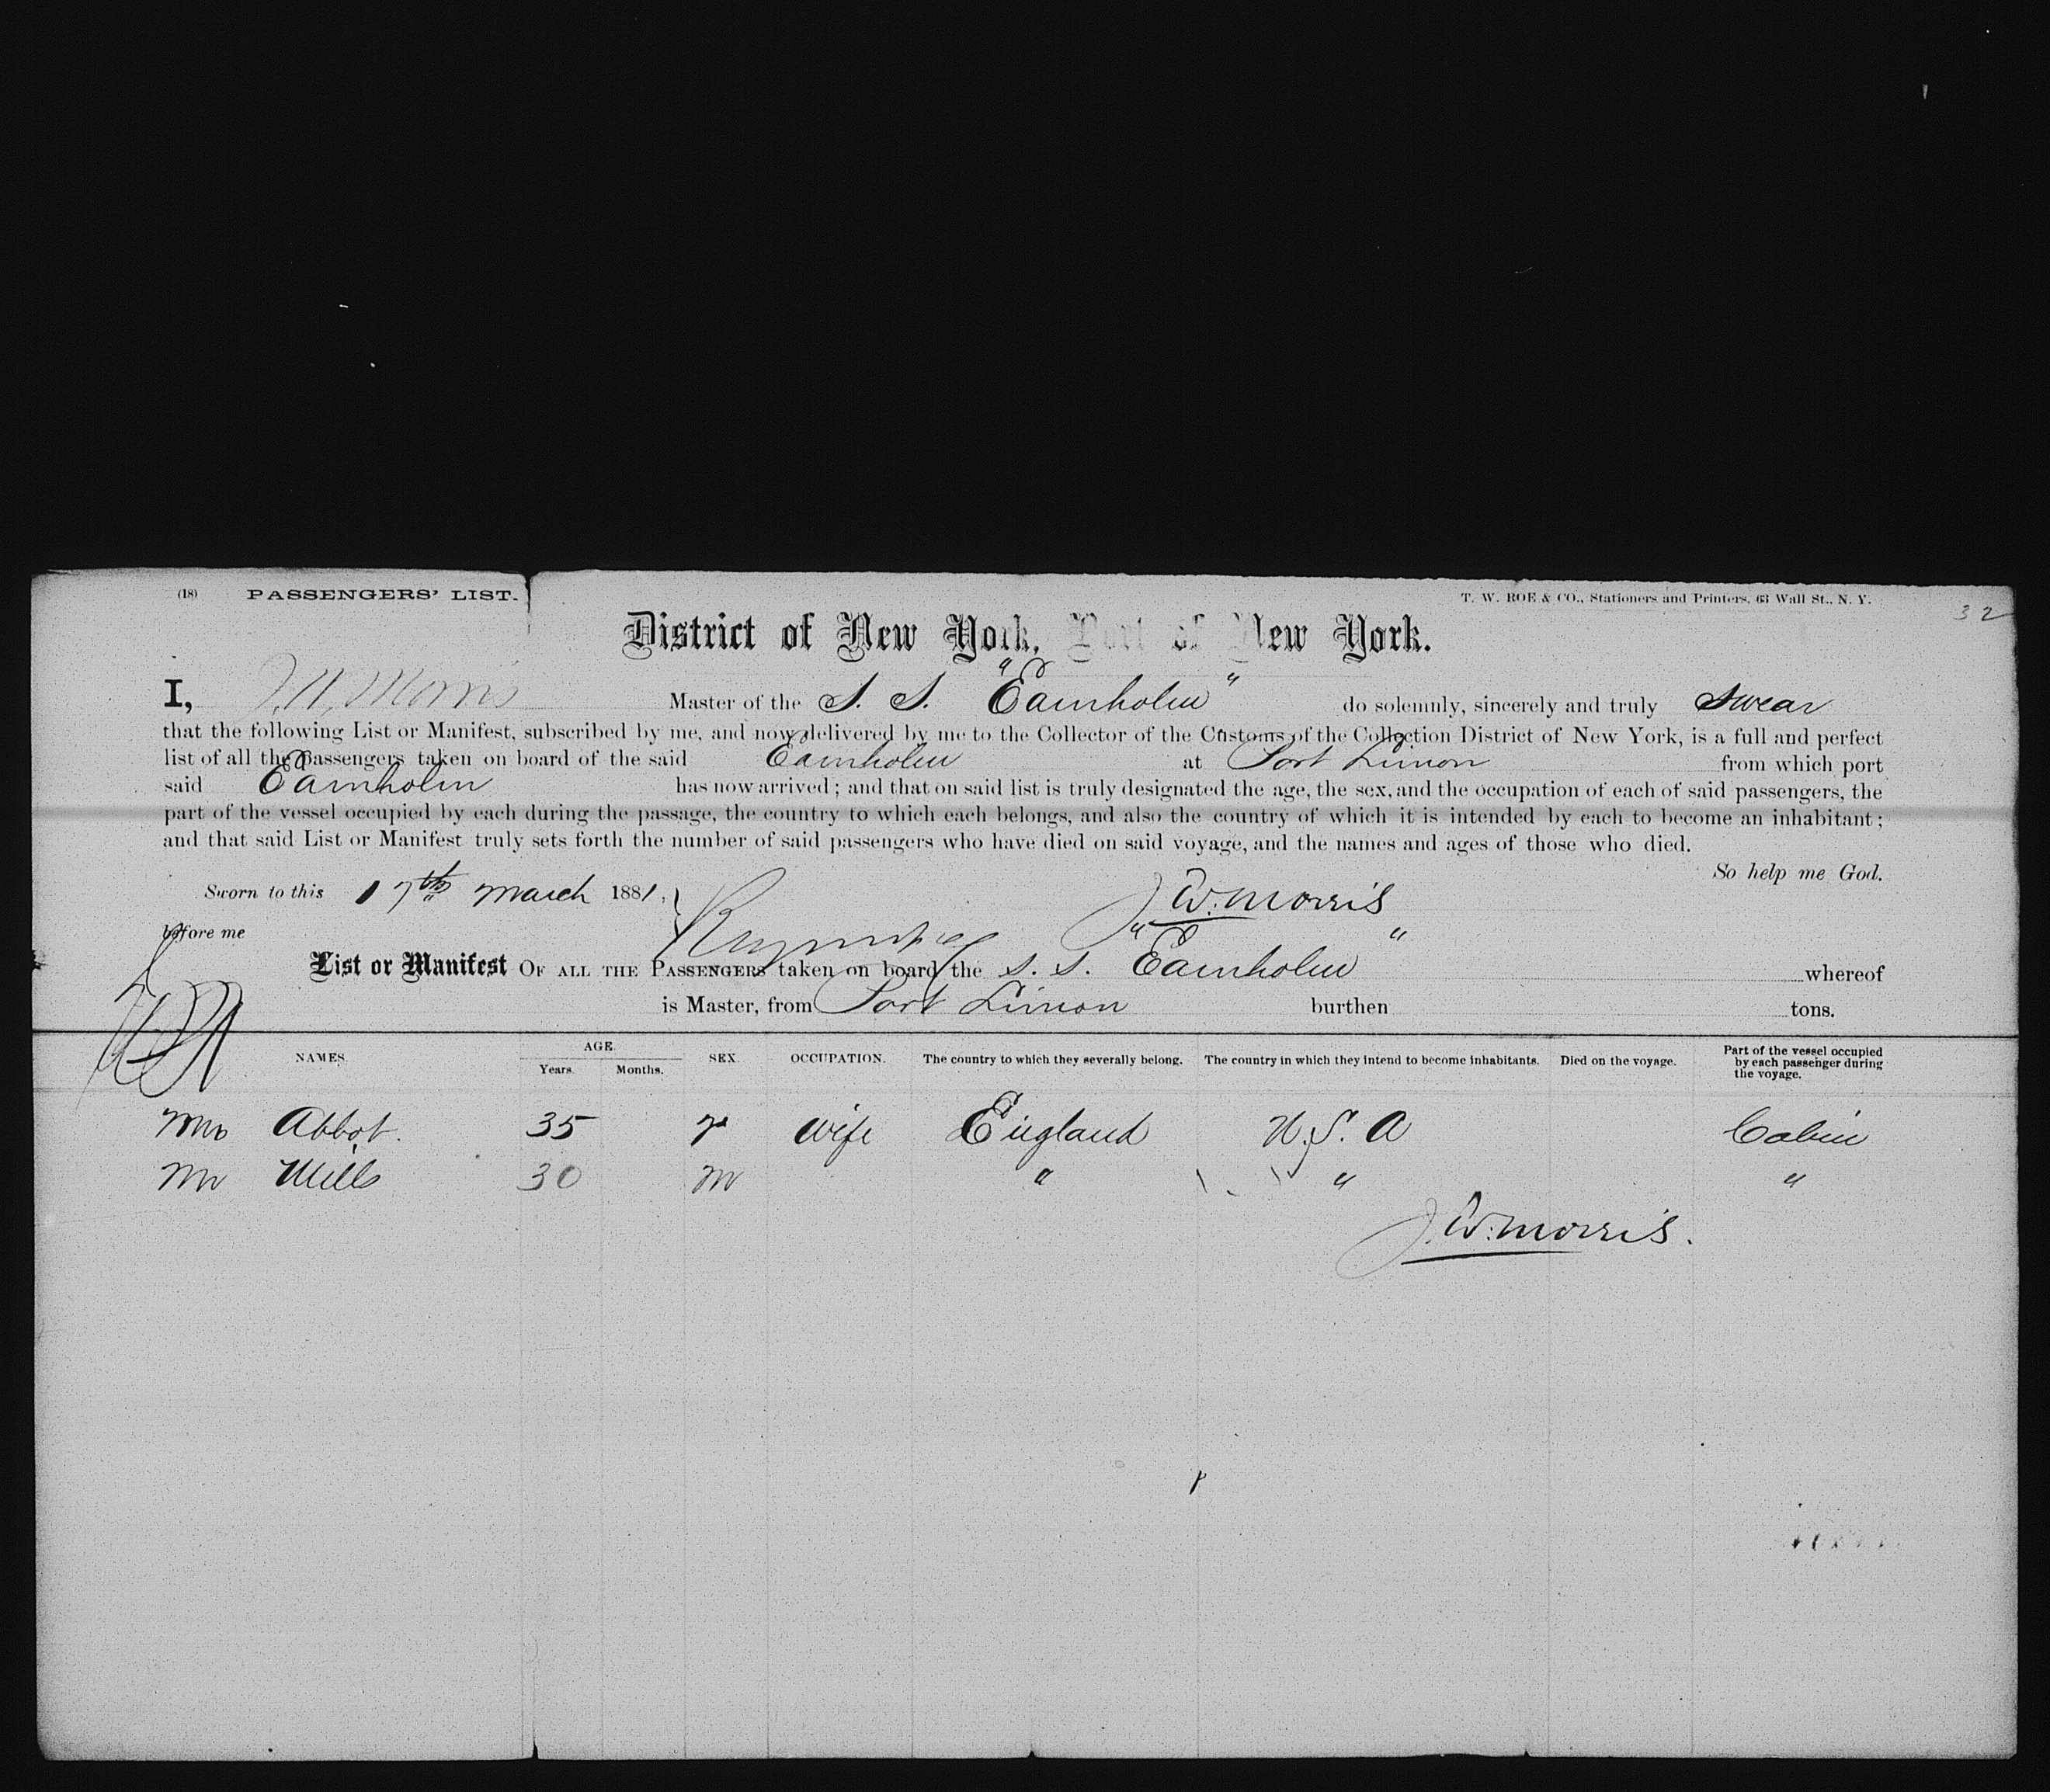 (18) PASSENGERS' LIST. T. W. ROE & CO., Stationers and Printers, 63 Wall St., N. Y.
32
District of New York, Port of New York.
I, J. W. Morris Master of the S. S. "Eamholm" do solemnly, sincerely and truly Swear
that the following List or Manifest, subscribed by me, and now delivered by me to the Collector of the Customs of the Collection District of New York, is a full and perfect
list of all the Passengers taken on board of the said Eamholm at Port Limon from which port
said Eamholm has now arrived; and that on said list is truly designated the age, the sex, and the occupation of each of said passengers, the
part of the vessel occupied by each during the passage, the country to which each belongs, and also the country of which it is intended by each to become an inhabitant;
and that said List or Manifest truly sets forth the number of said passengers who have died on said voyage, and the names and ages of those who died.
So help me God.
Sworn to this 17th March 1881, J. W. Morris
before me
List or Manifest OF ALL THE PASSENGERS taken on board the S. S. "Eamholm" whereof
is Master, from Port Limon burthen tons.
NAMES. AGE. Years. Months. SEX. OCCUPATION. The country to which they severally belong. The country in which they intend to become inhabitants. Died on the voyage. Part of the vessel occupied by each passenger during the voyage.
Mrs Abbot. 35 F Wife England U. S. A Cabin
Mr Mills 30 M " " "
J. W. Morris.